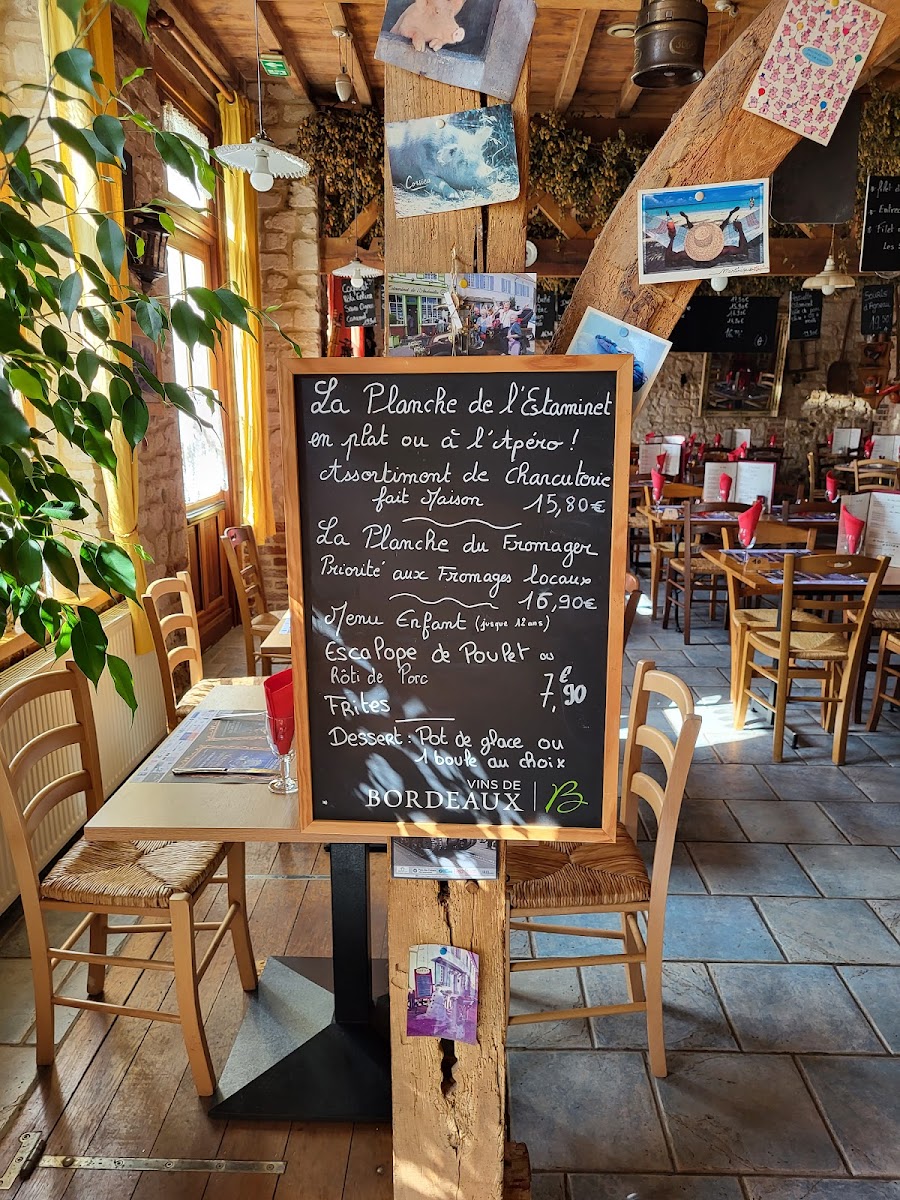 Corsica
La Planche de l'Etaminet
en plat ou à l'Apéro !
Assortiment de Charcuterie
fait Maison 15,80€
La Planche du Fromager
Priorité aux Fromages locaux
16,90€
Menu Enfant (jusque 12 ans)
Escalope de Poulet ou
Rôti de Porc
7,€90
Frites
Dessert : Pot de glace ou
1 boule au choix
VINS DE
BORDEAUX B